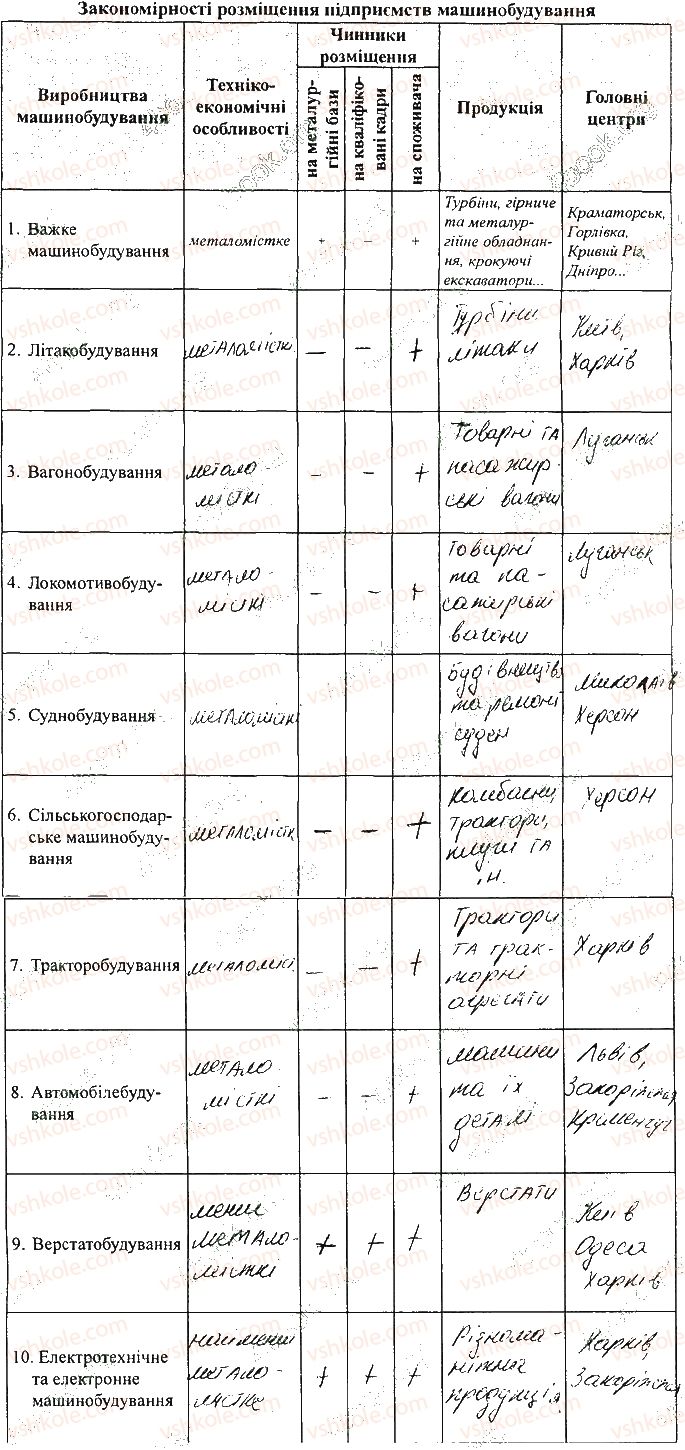 Закономірності розміщення підприємств машинобудування
Виробництва
машинобудування
Техніко-
економічні
особливості
Чинники
розміщення
на металур-
гійні бази
на кваліфіко-
вані кадри
на споживача
Продукція
Головні
центри
1. Важке
машинобудування
металомістке
+
–
+
Турбіни, гірниче
та металур-
гійне обладнан-
ня, крокуючі
екскаватори...
Краматорськ,
Горлівка,
Кривий Ріг,
Дніпро...
2. Літакобудування
металомісткі
–
–
+
Турбіни
літаки
Київ,
Харків
3. Вагонобудування
метало
місткі
–
–
+
Товарні та
пасажир-
ські вагони
Луганськ
4. Локомотивобуду-
вання
метало-
місткі
–
–
+
Товарні
та па-
сажирські
вагони
Луганськ
5. Суднобудування
металомісткі
Будівництв
та ремонт
суден
Миколаїв
Херсон
6. Сільськогосподар-
ське машинобуду-
вання
металомістк
–
–
+
Комбайни,
трактори,
плуги та
ін.
Херсон
7. Тракторобудування
металоміст
–
–
+
Трактори
та трак-
торні
агрегати
Харків
8. Автомобілебуду-
вання
метало
місткі
–
–
+
машини
та їх
деталі
Львів,
Запоріжжя
Кременчуг
9. Верстатобудування
менш
метало-
місткі
+
+
+
Верстати
Київ
Одеса
Харків
10. Електротехнічне
та електронне
машинобудування
найменш
метало-
містке
+
+
+
Різнома-
нітна
продукція
Харків,
Запоріжжя